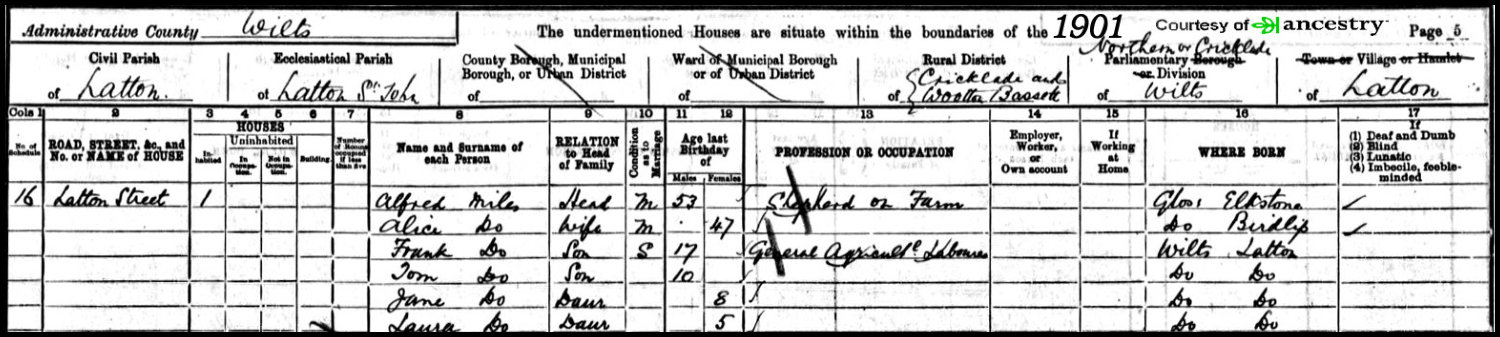 Administrative County Wilts The undermentioned Houses are situate within the boundaries of the 1901 Courtesy of ancestry Page 5
Civil Parish Ecclesiastical Parish County Borough, Municipal Borough, or Urban District Ward of Municipal Borough or of Urban District Rural District Northern or Cricklade Parliamentary Borough or Division Town or Village or Hamlet
of Latton. of Latton St. John of of of Cricklade and Wootton Bassett of Wilts of Latton
Cols 1 2 3 4 5 6 7 8 9 10 11 12 13 14 15 16 17
No. of Schedule ROAD, STREET, &c., and No. or NAME of HOUSE HOUSES Inhabited Uninhabited In Occupation. Not in Occupation. Building. Number of Rooms occupied if less than five Name and Surname of each Person RELATION to Head of Family Condition as to Marriage Age last Birthday of Males Females PROFESSION OR OCCUPATION Employer, Worker, or Own account If Working at Home WHERE BORN If (1) Deaf and Dumb (2) Blind (3) Lunatic (4) Imbecile, feeble-minded
16 Latton Street 1 Alfred Miles Head M 53 Shepherd on Farm Glos: Elkstone
Alice Do Wife M 47 Do Birdlip
Frank Do Son S 17 General Agricultl Labourer Wilts Latton
Tom Do Son 10 Do Do
Jane Do Daur 8 Do Do
Laura Do Daur 5 Do Do